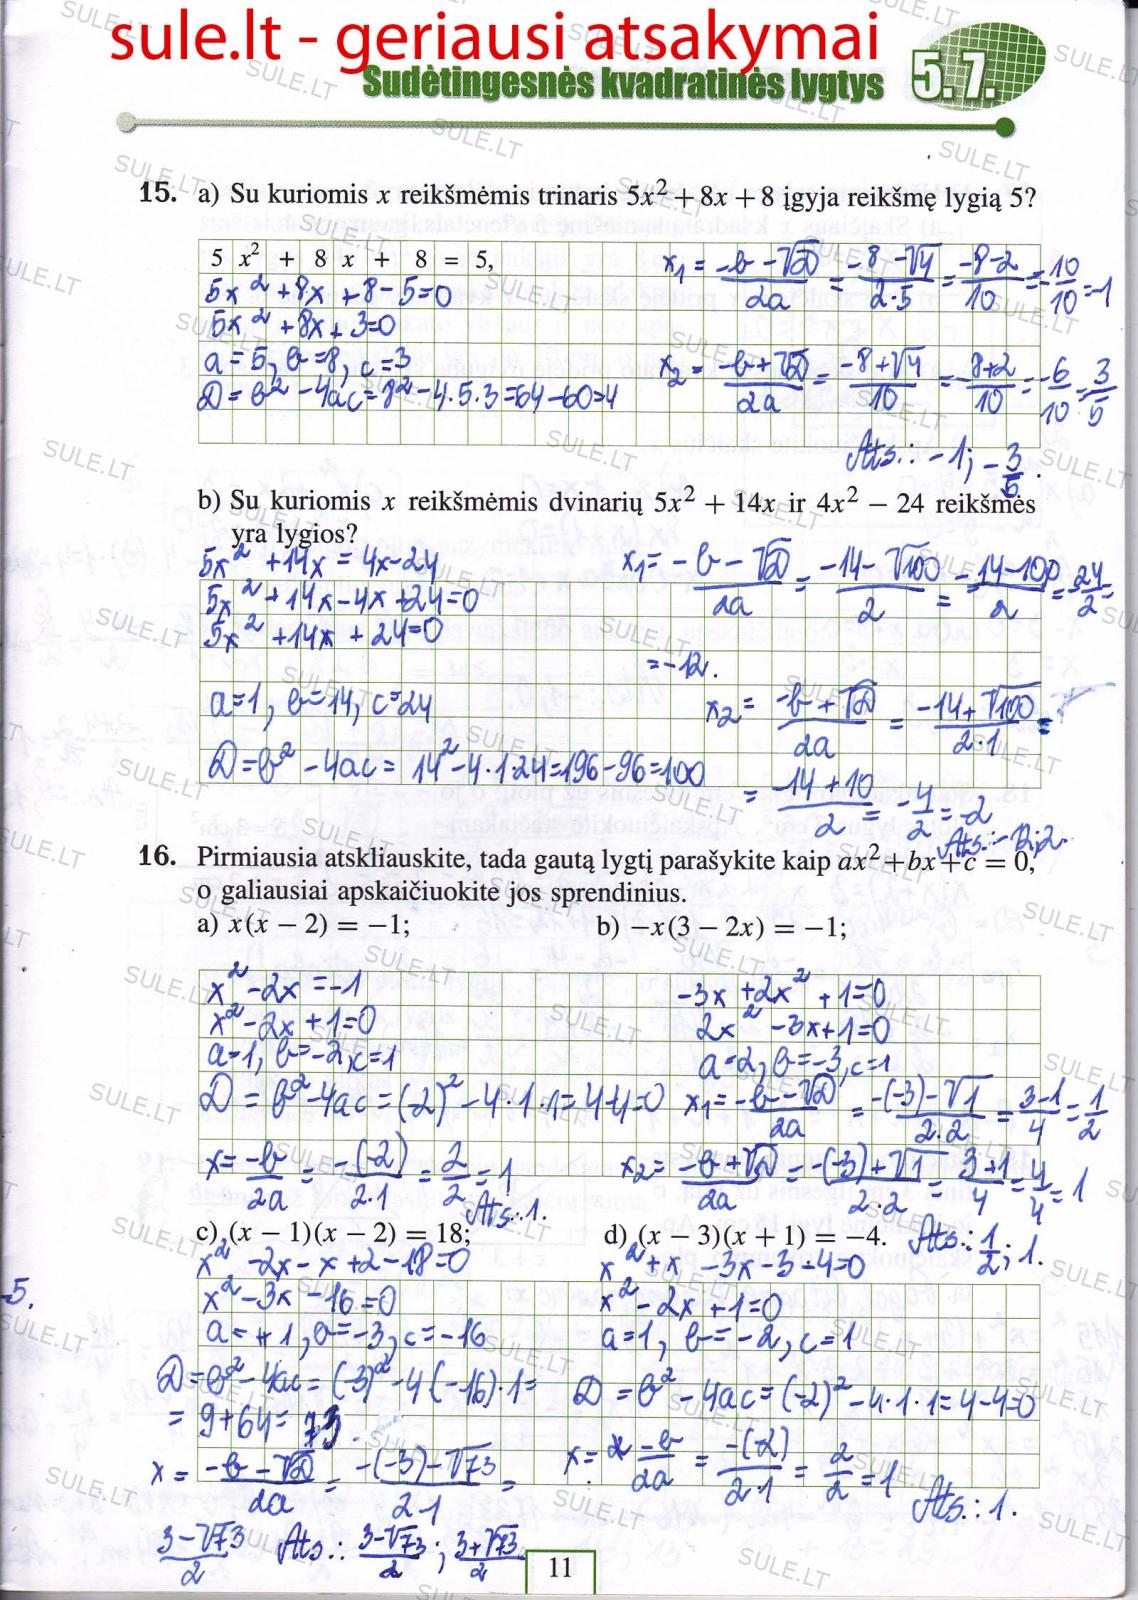 sule.lt - geriausi atsakymai
Sudėtingesnės kvadratinės lygtys 5.7.
15. a) Su kuriomis x reikšmėmis trinaris 5x² + 8x + 8 įgyja reikšmę lygią 5?
5 x² + 8 x + 8 = 5,
5x² + 8x + 8 - 5 = 0
5x² + 8x + 3 = 0
a = 5, b = 8, c = 3
D = b² - 4ac = 8² - 4·5·3 = 64 - 60 = 4
x₁ = (-b - √D)/2a = (-8 - √4)/(2·5) = (-8-2)/10 = -10/10 = -1
x₂ = (-b + √D)/2a = (-8 + √4)/10 = (-8+2)/10 = -6/10 = 3/5
Ats.: -1; -3/5.
b) Su kuriomis x reikšmėmis dvinarių 5x² + 14x ir 4x² − 24 reikšmės
yra lygios?
5x² + 14x = 4x - 24
5x² + 14x - 4x + 24 = 0
5x² + 14x + 24 = 0
a = 1, b = 14, c = 24
D = b² - 4ac = 14² - 4·1·24 = 196 - 96 = 100
x₁ = (-b - √D)/2a = (-14 - √100)/2 = (-14 - 10)/2 = -24/2 =
= -12.
x₂ = (-b + √D)/2a = (-14 + √100)/(2·1) =
= (-14 + 10)/2 = -4/2 = -2
Ats.: -12; 2.
16. Pirmiausia atskliauskite, tada gautą lygtį parašykite kaip ax² + bx + c = 0,
o galiausiai apskaičiuokite jos sprendinius.
a) x(x − 2) = −1;
x² - 2x = -1
x² - 2x + 1 = 0
a = 1, b = -2, c = 1
D = b² - 4ac = (-2)² - 4·1·1 = 4-4 = 0
x = -b/2a = -(-2)/(2·1) = 2/2 = 1
Ats.: 1.
b) −x(3 − 2x) = −1;
-3x + 2x² + 1 = 0
2x² - 3x + 1 = 0
a = 2, b = -3, c = 1
x₁ = (-b - √D)/2a = (-(-3) - √1)/(2·2) = (3-1)/4 = 1/2
x₂ = (-b + √D)/2a = (-(-3) + √1)/(2·2) = (3+1)/4 = 4/4 = 1
Ats.: 1/2; 1.
c) (x − 1)(x − 2) = 18;
x² - 2x - x + 2 - 18 = 0
x² - 3x - 16 = 0
a = +1, b = -3, c = -16
D = b² - 4ac = (-3)² - 4(-16)·1 =
= 9 + 64 = 73.
x = (-b - √D)/2a = (-(-3) - √73)/(2·1) =
(3 - √73)/2 Ats.: (3 - √73)/2; (3 + √73)/2
d) (x − 3)(x + 1) = −4.
x² + x - 3x - 3 + 4 = 0
x² - 2x + 1 = 0
a = 1, b = -2, c = 1
D = b² - 4ac = (-2)² - 4·1·1 = 4 - 4 = 0
x = -b/2a = -(-2)/(2·1) = 2/2 = 1
Ats.: 1.
-5.
11
SULE.LT